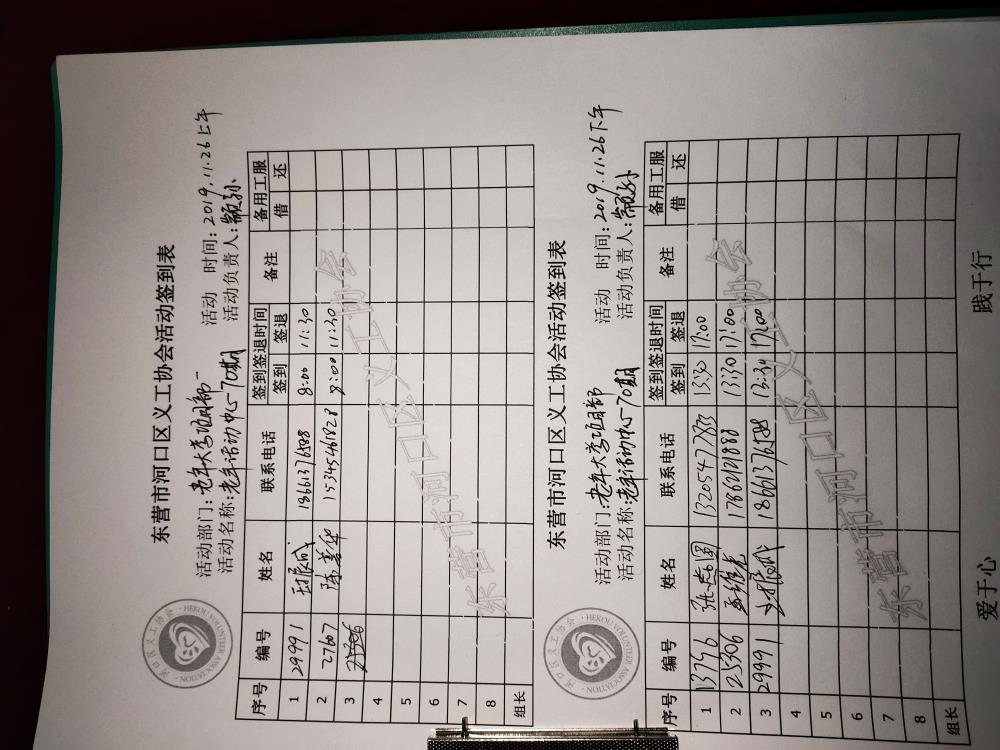 东营市河口区义工协会活动签到表
活动部门:老年大学项目部 活动 时间:2019.11.26上午
活动名称:老年活动中心70期 活动负责人:
序号 编号 姓名 联系电话 签到签退时间 备注 备用工服
签到 签退 借 还
1 29991 18661376588 8:00 11:30
2 27607 陈美华 15345461828 8:00 11:30
3
4
5
6
7
8
组长
东营市河口区义工协会
河口区义工协会
HEKOU VOLUNTEER ASSOCIATION
东营市河口区义工协会活动签到表
活动部门:老年大学项目部 活动 时间:2019.11.26下午
活动名称:老年活动中心70期 活动负责人:
序号 编号 姓名 联系电话 签到签退时间 备注 备用工服
签到 签退 借 还
1 13746 13205477833 13:30 17:00
2 25306 13:30 17:00
3 29991 18661376588 17:00
4
5
6
7
8
组长
东营市河口区义工协会
河口区义工协会
HEKOU VOLUNTEER ASSOCIATION
爱于心 践于行